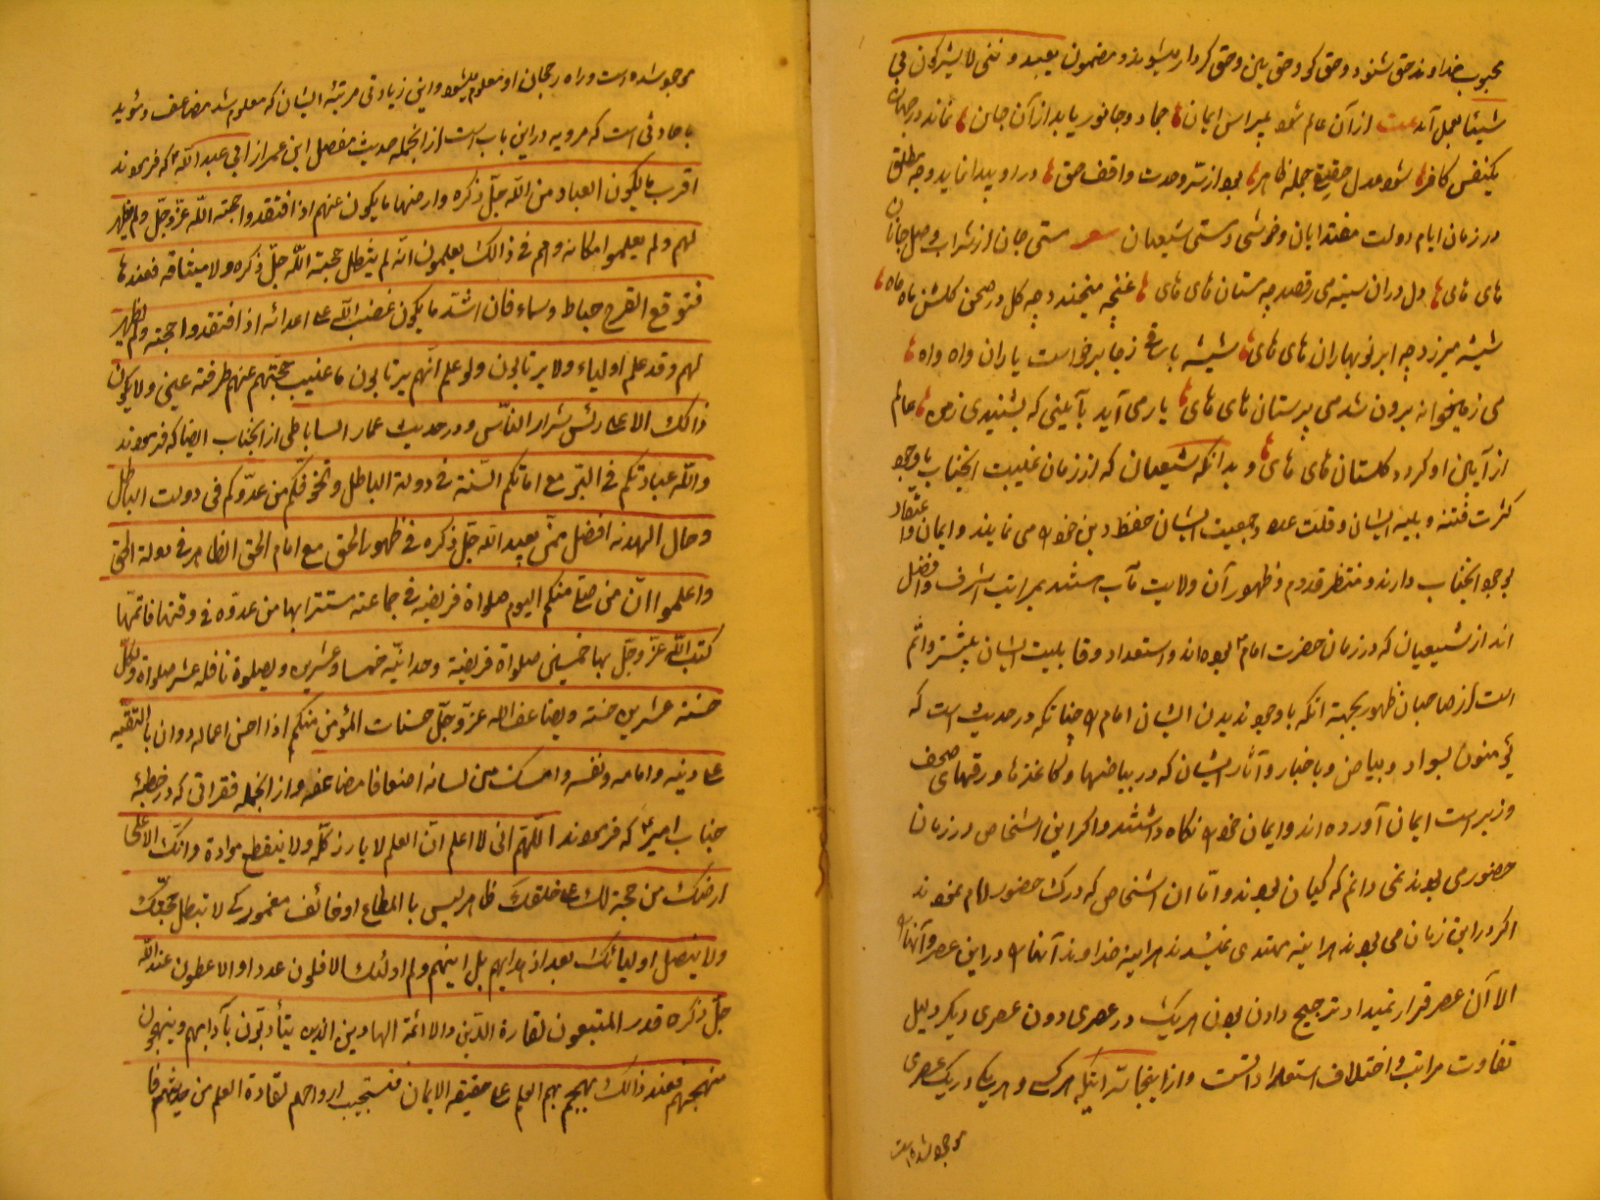 محبوب خداوند حق شنود و حق کو و حق بین و حق کردار میشوند و مضمون یعبد و ننی لا یشرکون بی
شیئا بعمل آید بیت از آن عالم شود پر اس ایمان جماد و جانور یابد از آن جان نماند در جهان
یکنفس کافر شود عدل حقیقی جمله ظاهر بود از سر وحدت واقف حق در او پیدا نماید وجه مطلق
در زمان ایام دولت مقتدایان و خوشی و ستی شیعیان شعر مستی جان از شراب وصل جانان
های های دل در ان سینه می رقصد چه مستان های های غنچه میخندد چه کل در صحن کلشن ماه ماه
شیشه میززد چه ابر نوبهاران های های شیشه با ساقی ز جا برخواست یاران واه واه
می ز میخوانه برون شد می پرستان های های یار می آید بآیینی که بشنیدی زمره عالم
از آیین او کردد کلستان های های و بدانکه شیعیان که در زمان غیبت انجناب باوجود
کثرت فتنه و بلیه ایشان و قلت عدد و جمعیت ایشان حفظ دین خود می نمایند و ایمان و اعتقاد
بوجود انجناب دارند و منتظر قدوم و ظهور آن ولایت مآب هستند بمراتب اشرف و افضل
اند از شیعیان که در زمان حضرت امام بوده اند و استعداد و قابلیت ایشان بیشتر و اتم
است از صاحبان ظهور بجهة انکه باوجود ندیدن ایشان امام را چنانکه در حدیث است که
یؤمنون بسواد و بیاض و باخبار و آثار ایشان که در بیاضها و کاغذها و رقمهای صحف
و زبر است ایمان آورده اند و ایمان خود نکاه داشتند و اکر این اشخاص در زمان
حضور می بودند نمی دانم که کیان بودند و امّا ان اشخاص که درک حضور امام نمودند
اکر در این زمان می بودند هراینه مهتدی نمیشدند هراینه خداوند آنها را در این عصر و آنها را
الا آن عصر قرار نمیداد ترجیح دادن بودن هریک در عصری دون عصری دیکر دلیل
تفاوت مراتب و اختلاف استعداد است و از اینجاست اینکه هرکس و هریک در یک عصری
موجود شده است
موجود شده است و راه رجحان او معلوم میشود و این زیادتی مرتبهٔ ایشان که معلوم شد مضاعف و مؤید
باحادیثی است که مرویه در این باب است از انجمله حدیث مفضل ابن عمر از ابی عبد الله که فرمودند
اقرب ما یکون العباد من الله جلّ ذکره وارضها ما یکون عنهم اذا افتقدوا حجة الله عزّ وجلّ ولم یظهر
لهم ولم یعلموا مکانه وهم فی ذالک یعلمون انّه لم یبطل حجة الله جلّ ذکره ولا میثاقه فعندها
فتوقع الفرج صباحا ومساء فان اشدّ ما یکون غضب الله علی اعدائه اذا افتقدوا حجته ولم یظهر
لهم وقد علم اولیاء ولا یرتابون ولو علم انّهم یرتابون ما غیب حجّتهم عنهم طرفته عین ولا یکون
ذالک الا علی رئس شرار الناس و در حدیث عمار الساباطی از انجناب ایضا که فرمودند
والله عبادتکم فی السّر مع امامکم السّتة فی دولة الباطل وتخوفکم من عدوّکم فی دولت الباطل
وحال الهدنه افضل ممّن یعبد الله جلّ ذکره فی ظهور الحق مع امام الحق الظاهر فی دولة الحق
واعلموا انّ من صلی منکم الیوم صلواة فریضة فی جماعة مستترا بها من عدوّه فی وقتها فاتمّها
کتب الله عزّ وجلّ بها خمسین صلواة فریضة وحدانیّة خمسا وعشرین وبصلوة نافله عشر صلواة وبکلّ
حسنة عشرین حسنة ویضاعف الله عزّ وجلّ حسنات المؤمن منکم اذا احسن اعماله ودان بالتقیه
علی دینه وامامه ونفسه وامسک من لسانه اضعافا مضاعفه و از انجمله فقراتی که در خطبهٔ
جناب امیر که فرمودند اللّهم انی لا اعلم انّ العلم لا یارز کلّه ولا ینقطع موادة وانّک لا تخلی
ارضک من حجة لک علی خلقک ظاهر لیس بالمطاع او خائف مغمور کی لا تبطل حجّتک
ولا یضل اولیائک بعد اذ هدایهم بل اینهم ولم اولئک الا قلون عددا والاعظمون عند الله
جلّ ذکره قدر المتبعون لقارة الدّین والائمة الهادین الذین یتأدبّون بآدابهم وینهجون
منهجهم فعند ذالک یهجم بهم العلم علی حقیقة الایمان فتستجیب ارواحهم لقادة العلم من حدیثهم فا